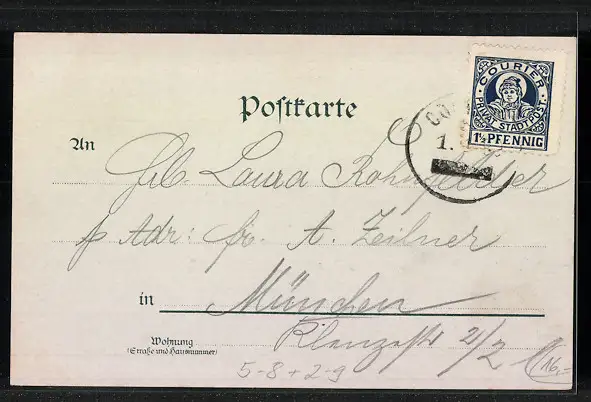 COURIER
PRIVAT STADTPOST
1½ PFENNIG
1.
Postkarte
An
Frl. Laura
p Adr: fr. A. Zeilner
in München
Klenzestr 21/2
Wohnung
(Straße und Hausnummer)
5-8+2-9
16,-